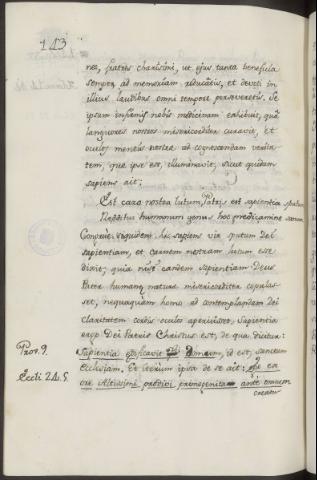 113
nes, fratres charissimi, ut ejus tanta beneficia
semper ad memoriam reducatis, et devoti in
illius laudibus omni tempore perseveretis. Se
ipsum infirmis nobis medicinam exhibuit, qui
languores nostros misericorditer curavit, et
oculos mentis nostræ ad cognoscendam verita-
tem, quæ ipse est, illuminavit, sicut quidam
sapiens ait:
Est caro nostra lutum, Patris est sapientia sputum
humanum genus hoc
Congrue siquidem hic sapiens vir sputum Dei
sapientiam, et carnem nostram lutum esse
dixit; quia nisi eamdem sapientiam Deus
Pater humanæ naturæ misericorditer copulas-
set, nequaquam homo ad contemplandam Dei
claritatem cordis oculos aperuisset. Sapientia
ergo Dei Patris Christus est, de qua dicitur:
Prov. 9. Sapientia ædificavit sibi domum, id est, sanctam
Ecclesiam. Et iterum ipsa de se ait: Ego ex
Eccli 24. 5. ore Altissimi prodivi primogenita ante omnem
creatu